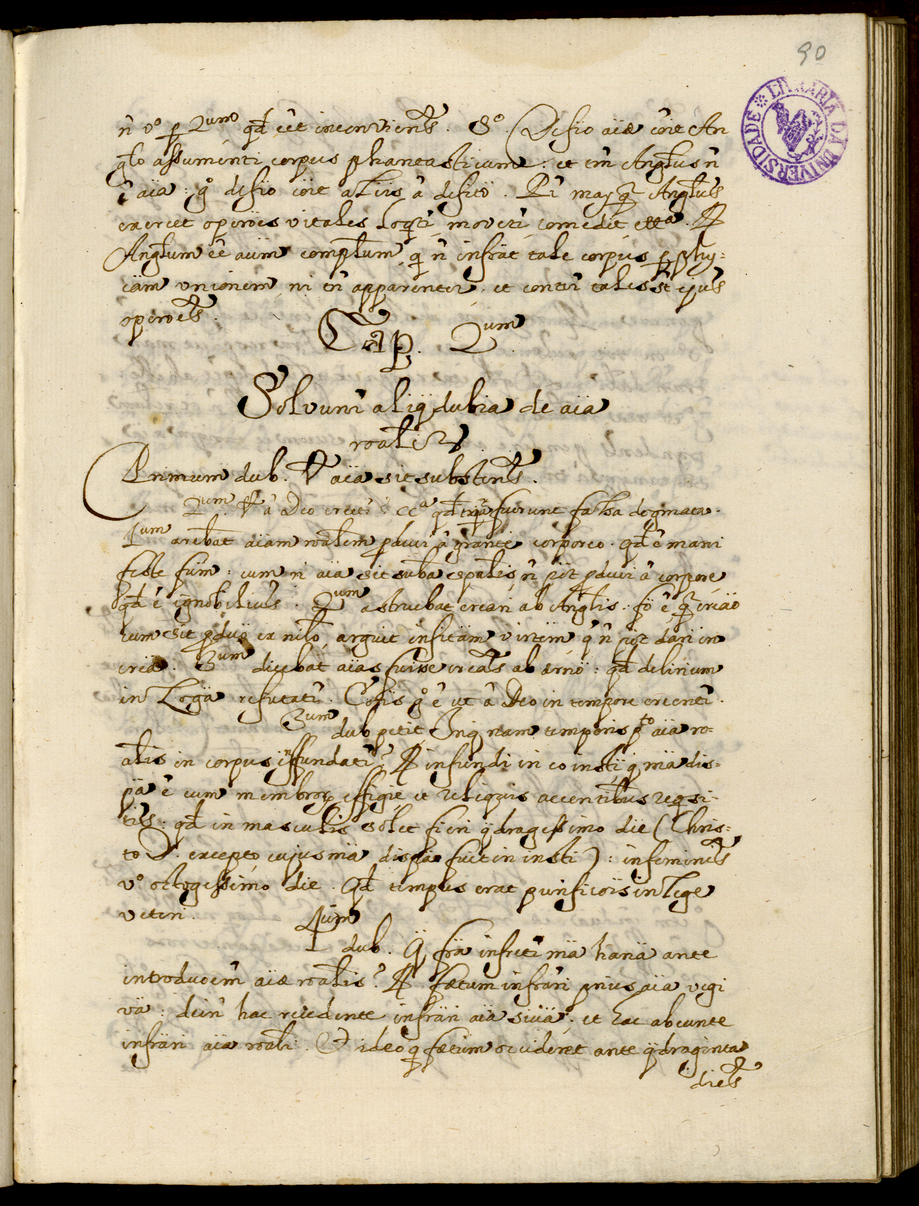 90
LIVRARIA DA UNIVERSIDADE
n̄ v.º p 2.um qd̄ cēt inconvientˢ. 8.º Defio aiæ cōie An
glo assumenti corpus phantasticum: et tn̄ Anglus n̄
ē aīa: gº defio cōit aliis â defitô.
exercet operōes vitales loqti, moveti, comedit ett.ª
Anglum eē aīum compltum, q n̄ infr̄at tale corpus p phy-
icam unionem ni tn̄ apparenter. et contr̄ tales st ejus
operoēˢ.
Cap. 2.um
Solvunt̄ aliq̄ dubia de aīa
roāli
Primum dub. V̄ aīa sit substˢ.
2.um V̄ â Deo creeti: cc.ª qd̄ fuerunt falsa dogmata.
1.um arebat aīam roālem pduci â grante corporeo. qd̄ ē mani
feste fsum: cum n̄ aīa sit suba spalis n̄ pōt pduci â corpore
qd̄ ē ignobilius. 2.um astruebat creari ab Anglis. fº ē q creāo
cum sit pduō ex nihlo, arguit infitam virtem q n̄ pōt dari in
creā. 3.um dicebat aīas fuisse creatas ab ærnō: qd̄ delirium
in Logā refutatr̄. Cōfis gº ē ut â Deo in tempore creenti.
3.um dub. petit Inq ntam temporis pto aīa ro-
alis in corpus iñffundatr̄? R infundi in eo insti q mā dis-
pā ē cum membrorꝝ effigie et reliquis accentibus reqsi-
tis. qd̄ in masculis solet fieri q̄dragessimo die (Chris-
to D. excepto cujus mā dispā fuit in insti): in feminis
vº octogessimo die. Qd̄ tempus erat purificōis in lege
veteri.
4.um dub. Q frā infretr̄ mā hanā ante
introducem̄ aiæ roālis? R fætum infrāri prius aīa vegi
vā: dein̄ hac recedente infrāri aīa sivā: et hac abeunte
infrāri aīa roāli. Et ideo q fætum occideret ante q̄draginta
dies